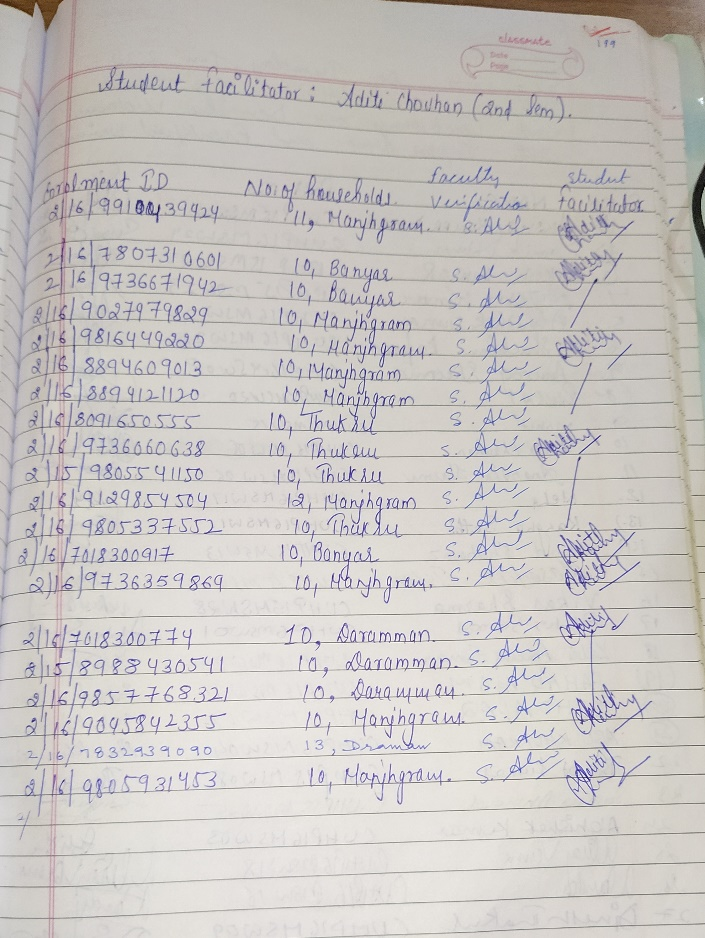 classmate
Date
Page
199
Student facilitator: Aditi Chouhan (2nd Sem).
Enrolment ID No. of households. faculty verification Student facilitator
2/16/9910439424 11, Manjhgram. S.
2/16/7807310601 10, Banyar S.
2/16/9736671942 10, Banyar S.
2/16/9027979829 10, Manjhgram S.
2/16/9816449220 10, Manjhgram. S.
2/16/8894609013 10, Manjhgram S.
2/16/8894121120 10, Manjhgram S.
2/16/8091650555 10, Thukru S.
2/16/9736060638 10, Thukru S.
2/15/9805541150 10, Thukru S.
2/16/9129854504 12, Manjhgram S.
2/16/9805337552 10, Thukru S.
2/16/7018300917 10, Banyar S.
2/16/9736359869 10, Manjhgram. S.
2/16/7018300774 10, Daramman. S.
2/15/8988430541 10, Daramman. S.
2/16/9857768321 10, Daramman. S.
2/16/9045842355 10, Manjhgram. S.
2/16/7832939090 13, Draman S.
2/16/9805931453 10, Manjhgram. S.
2/